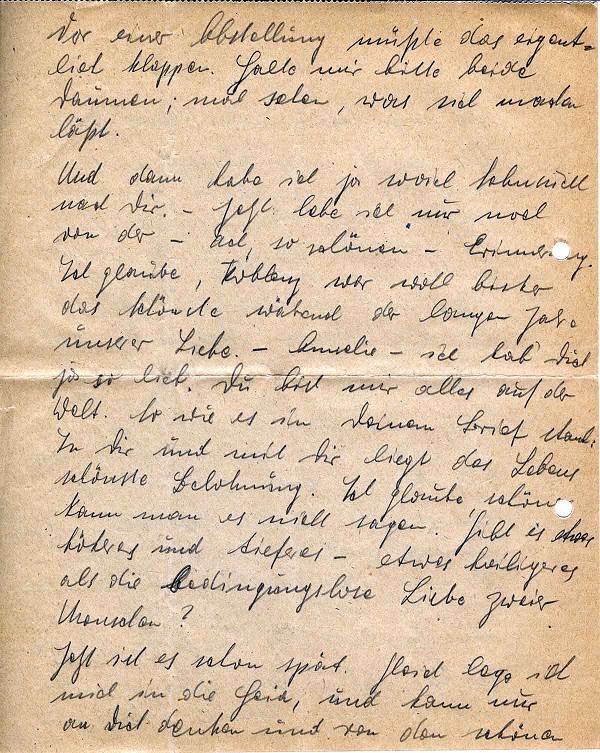 Vor einer Abstellung müßte das eigent=
lich klappen. Halte mir bitte beide
Daumen; mal sehen, was sich machen
läßt.
Und dann habe ich ja soviel Sehnsucht
nach Dir. – Jetzt lebe ich nur noch
von der – ach, so schönen – Erinnerung.
Ich glaube, Koblenz war wohl bisher
das schönste während der langen Jahre
unserer Liebe. – Annelie – ich hab Dich
ja so lieb. Du bist mir alles auf der
Welt. So wie es in Deinem Brief stand:
In Dir und mit Dir liegt des Lebens
schönste Belohnung. Ich glaube, schöner
kann man es nicht sagen. Gibt es etwas
höheres und tieferes – etwas heiligeres
als die bedingungslose Liebe zweier
Menschen?
Jetzt ist es schon spät. Gleich lege ich
mich in die Heia, und kann nur
an Dich denken und von den schönen